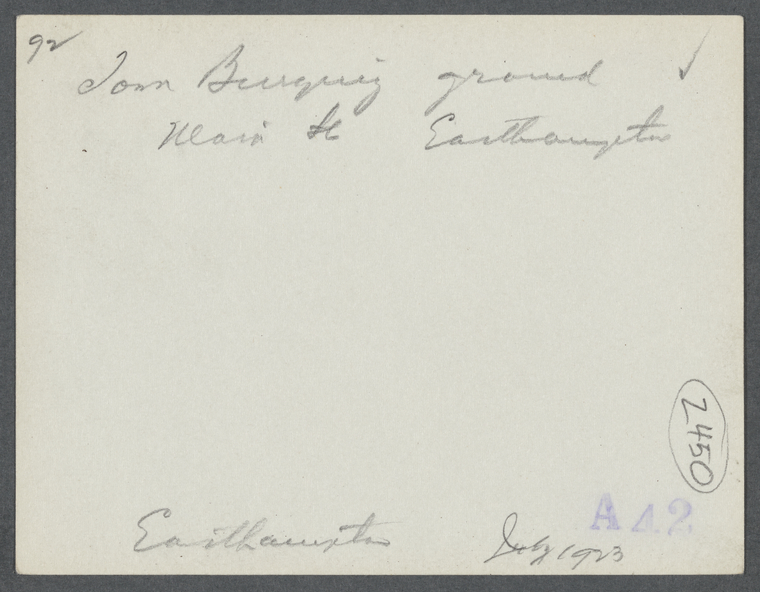 92
Town Burying ground ✓
Main St Easthampton
2450
A42
Easthampton July 1923